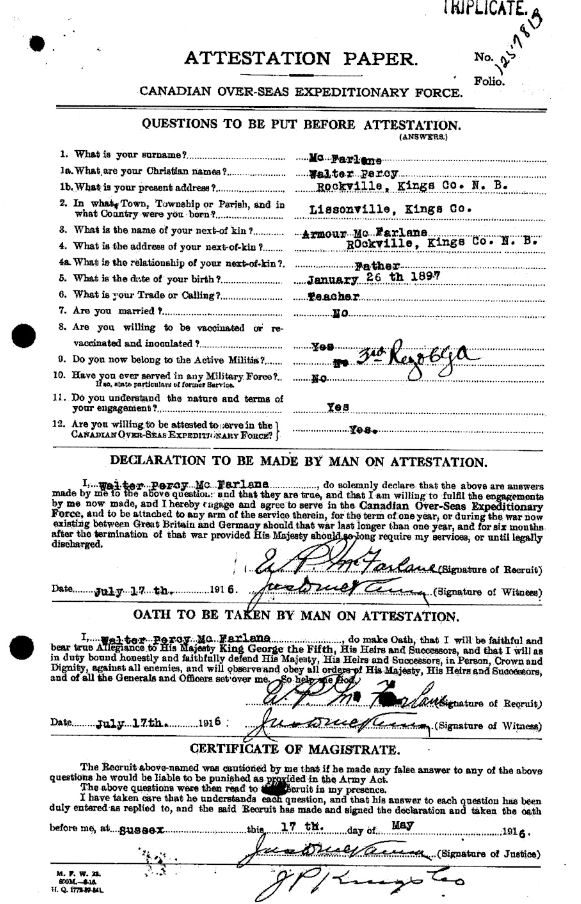 TRIPLICATE.
ATTESTATION PAPER.
No. 1257813
Folio.
CANADIAN OVER-SEAS EXPEDITIONARY FORCE.
QUESTIONS TO BE PUT BEFORE ATTESTATION.
(ANSWERS.)
1. What is your surname? Mc Farlane
1a. What are your Christian names? Walter Percy
1b. What is your present address? Rockville, Kings Co. N. B.
2. In what Town, Township or Parish, and in
what Country were you born? Lissonville, Kings Co.
3. What is the name of your next-of kin? Armour Mc Farlane
4. What is the address of your next-of-kin? ROckville, Kings Co. N. B.
4a. What is the relationship of your next-of-kin? Father
5. What is the date of your birth? January 26 th 1897
6. What is your Trade or Calling? Teacher
7. Are you married? No
8. Are you willing to be vaccinated or re-
vaccinated and inoculated? Yes
9. Do you now belong to the Active Militia? No 3rd Reg CGA
10. Have you ever served in any Military Force? No
If so, state particulars of former Service.
11. Do you understand the nature and terms of
your engagement? Yes
12. Are you willing to be attested to serve in the
CANADIAN OVER-SEAS EXPEDITIONARY FORCE? Yes.
DECLARATION TO BE MADE BY MAN ON ATTESTATION.
I, Walter Percy Mc Farlane, do solemnly declare that the above are answers
made by me to the above questions and that they are true, and that I am willing to fulfil the engagements
by me now made, and I hereby engage and agree to serve in the Canadian Over-Seas Expeditionary
Force, and to be attached to any arm of the service therein, for the term of one year, or during the war now
existing between Great Britain and Germany should that war last longer than one year, and for six months
after the termination of that war provided His Majesty should so long require my services, or until legally
discharged.
W. P. McFarlane (Signature of Recruit)
Date July 17 th. 1916 (Signature of Witness)
OATH TO BE TAKEN BY MAN ON ATTESTATION.
I, Walter Percy Mc Farlane, do make Oath, that I will be faithful and
bear true Allegiance to His Majesty King George the Fifth, His Heirs and Successors, and that I will as
in duty bound honestly and faithfully defend His Majesty, His Heirs and Successors, in Person, Crown and
Dignity, against all enemies, and will observe and obey all orders of His Majesty, His Heirs and Successors,
and of all the Generals and Officers set over me. So help me God.
W. P. McFarlane (Signature of Recruit)
Date July 17th. 1916 (Signature of Witness)
CERTIFICATE OF MAGISTRATE.
The Recruit above-named was cautioned by me that if he made any false answer to any of the above
questions he would be liable to be punished as provided in the Army Act.
The above questions were then read to the Recruit in my presence.
I have taken care that he understands each question, and that his answer to each question has been
duly entered as replied to, and the said Recruit has made and signed the declaration and taken the oath
before me, at Sussex this 17 th. day of May 1916.
(Signature of Justice)
J P Kings Co
M. F. W. 23.
H. Q. 1772-39-841.